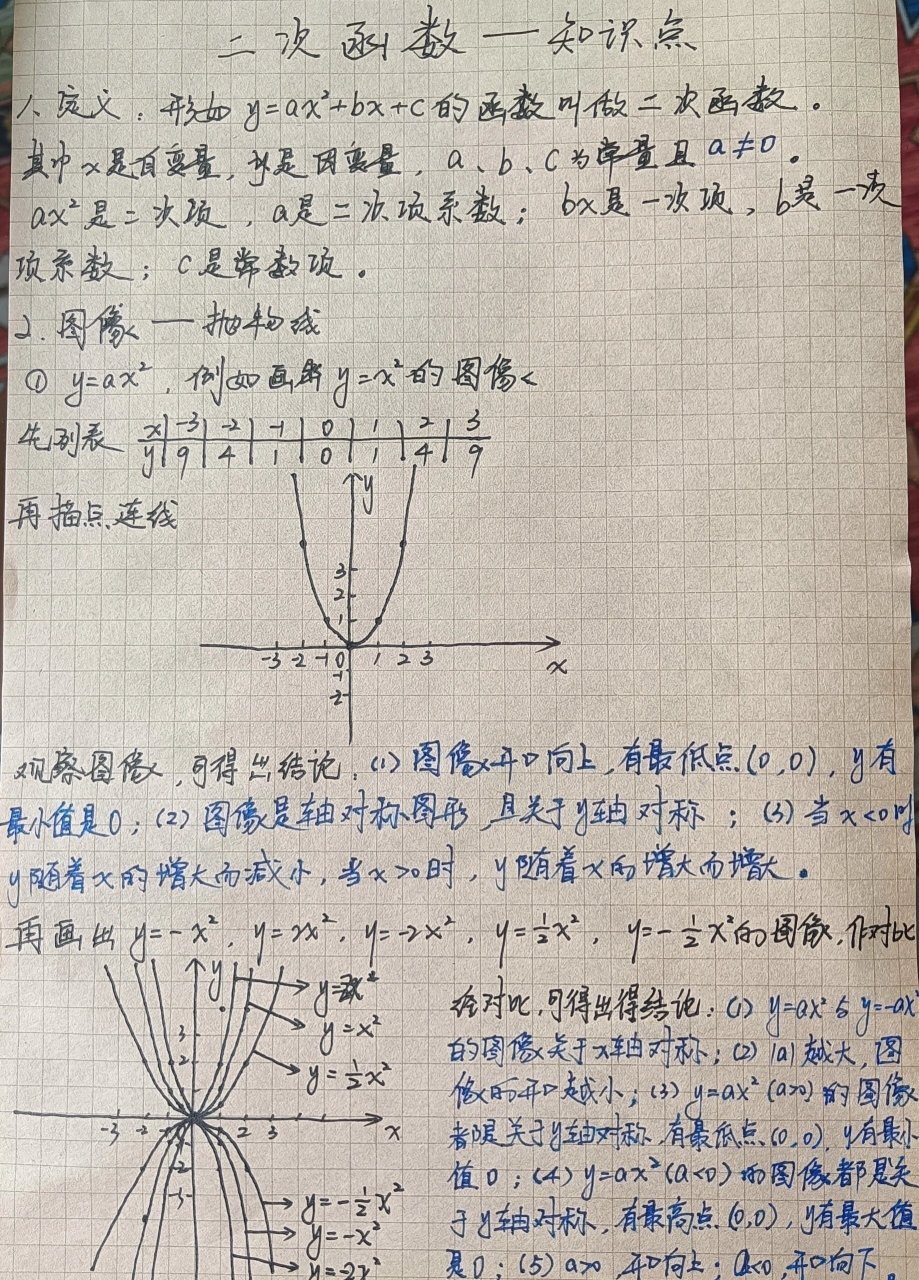 二次函数一知识点
1、定义：形如 y=ax²+bx+c 的函数叫做二次函数。
其中 x是自变量，y是因变量，a、b、c为常量且 a≠0。
ax²是二次项，a是二次项系数；bx是一次项，b是一次
项系数；c是常数项。
2. 图像 — 抛物线
① y=ax²，例如画出 y=x² 的图像
先列表
x -3 -2 -1 0 1 2 3
y 9 4 1 0 1 4 9
再描点连线
y
3
2
1
-3 -2 -1 0 1 2 3
x
-1
-2
观察图像，可得出结论：(1) 图像开口向上，有最低点(0,0)，y有
最小值是0；(2) 图像是轴对称图形，且关于y轴对称；(3) 当 x<0时
y随着x的增大而减小，当x>0时，y随着x的增大而增大。
再画出 y=-x²，y=2x²，y=-2x²，y=½x²，y=-½x²的图像，作对比
y
y=2x²
y=x²
y=½x²
3
2
-3 -2 2 3 x
-2
-3
y=-½x²
y=-x²
y=-2x²
经对比，可得出得结论：(1) y=ax²与y=-ax²
的图像关于x轴对称；(2) |a|越大，图
像的开口越小；(3) y=ax²(a>0)的图像
都是关于y轴对称，有最低点(0,0)，y有最小
值0；(4) y=ax²(a<0)的图像都是关
于y轴对称，有最高点(0,0)，y有最大值
是0；(5) a>0，开口向上；a<0，开口向下。